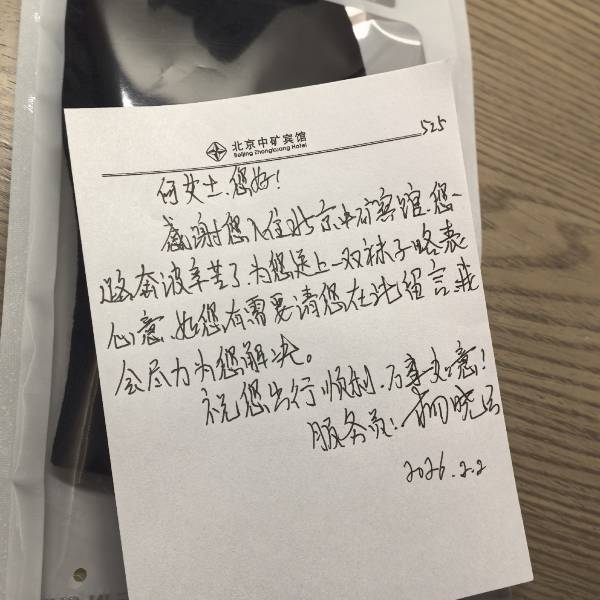 北京中矿宾馆
Beijing Zhongkuang Hotel
525
何女士.您好!
感谢您入住北京中矿宾馆.您一
路奔波辛苦了.为您送上一双袜子略表
心意.如您有需要请您在此留言我
会尽力为您解决。
祝您出行顺利.万事如意!
服务员:
2026.2.2